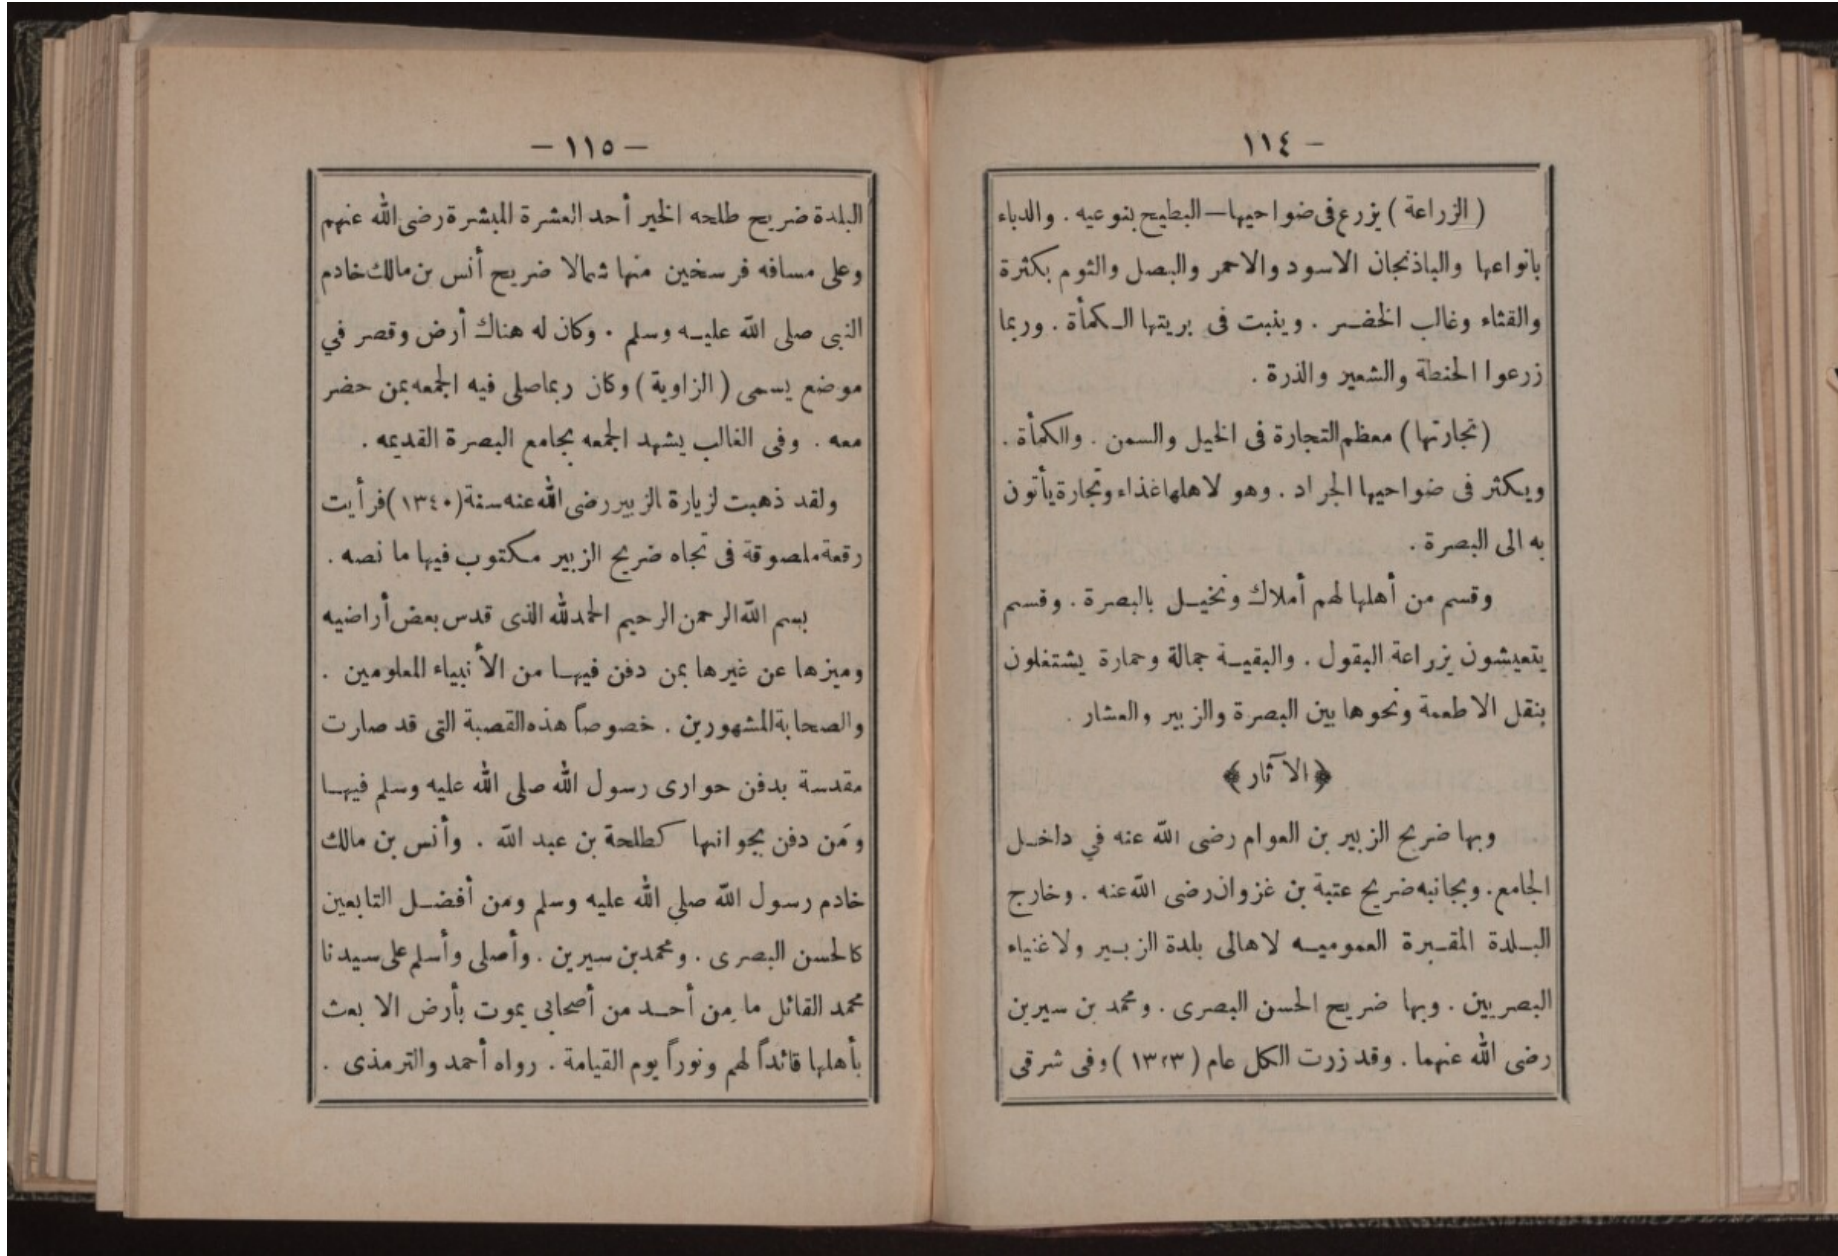 ١١٤ –
( الزراعة ) يزرع فى ضواحيها — البطيخ بنوعيه . والدباء
بانواعها والباذنجان الاسود والاحمر والبصل والثوم بكثرة
والقثاء وغالب الخضر . وينبت فى بريتها الكمأة . وربما
زرعوا الحنطة والشعير والذرة .
(تجارتها) معظم التجارة فى الخيل والسمن . والكمأة .
ويكثر فى ضواحيها الجراد . وهو لاهلها غذاء وتجارة يأتون
به الى البصرة .
وقسم من أهلها لهم أملاك ونخيل بالبصرة . وقسم
يتعيشون بزراعة البقول . والبقية جمالة وحمارة يشتغلون
بنقل الاطعمة ونحوها بين البصرة والزبير والعشار .
﴿ الآثار ﴾
وبها ضريح الزبير بن العوام رضى الله عنه في داخل
الجامع . وبجانبه ضريح عتبة بن غزوان رضى الله عنه . وخارج
البلدة المقبرة العموميه لاهالى بلدة الزبير ولاغنياء
البصريين . وبها ضريح الحسن البصرى . ومحمد بن سيرين
رضى الله عنهما . وقد زرت الكل عام ( ١٣٢٣ ) وفى شرقى
– ١١٥ –
البلدة ضريح طلحه الخير أحد العشرة المبشرة رضى الله عنهم
وعلى مسافه فرسخين منها شمالا ضريح أنس بن مالك خادم
النبى صلى الله عليه وسلم . وكان له هناك أرض وقصر في
موضع يسمى ( الزاوية ) وكان ربما صلى فيه الجمعه بمن حضر
معه . وفى الغالب يشهد الجمعه بجامع البصرة القديمه .
ولقد ذهبت لزيارة الزبير رضى الله عنه سنة (١٣٤٠) فرأيت
رقعة ملصوقة فى تجاه ضريح الزبير مكتوب فيها ما نصه .
بسم الله الرحمن الرحيم الحمد لله الذى قدس بعض أراضيه
وميزها عن غيرها بمن دفن فيها من الأنبياء المعلومين .
والصحابة المشهورين . خصوصاً هذه القصبة التى قد صارت
مقدسة بدفن حوارى رسول الله صلى الله عليه وسلم فيها
ومَن دفن بجوانبها كطلحة بن عبد الله . وأنس بن مالك
خادم رسول الله صلي الله عليه وسلم ومن أفضل التابعين
كالحسن البصرى . ومحمد بن سيرين . وأصلى وأسلم على سيدنا
محمد القائل ما مِن أحد من أصحابى يموت بأرض الا بعث
بأهلها قائداً لهم ونوراً يوم القيامة . رواه أحمد والترمذى .